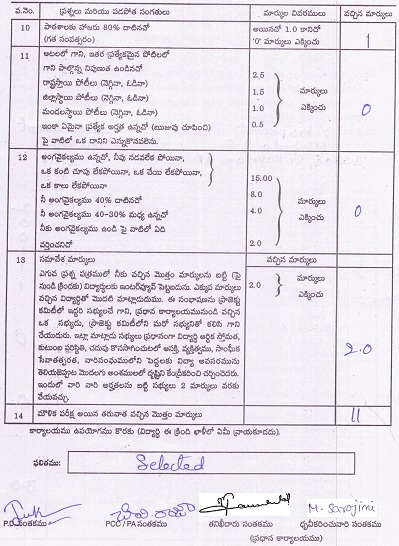 వ.నెం. ప్రశ్నలు మరియు పడపోత సంగతులు మార్కుల వివరములు వచ్చిన మార్కులు
10 పాఠశాలకు హాజరు 80% దాటినచో అయినచో 1.0 కానిచో 1
(గత సంవత్సరం) '0' మార్కులు ఎక్కించు
11 ఆటలలో గాని, ఇతర ప్రత్యేకమైన పోటీలలో
గాని పాల్గొన్న నిపుణత ఉండినచో 2.5
రాష్ట్రస్థాయి పోటీలు (నెగ్గినా, ఓడినా) 1.5 మార్కులు
జిల్లాస్థాయి పోటీలు (నెగ్గినా, ఓడినా) 1.0 ఎక్కించు 0
మండలస్థాయి పోటీలు (నెగ్గినా, ఓడినా) 0.5
ఇంకా ఏమైనా ప్రత్యేక అర్హత ఉన్నచో (ఋజువు చూపించి)
పై వాటిలో ఒక దానిని ఎన్నుకొనవలెను.
12 అంగవైకల్యము ఉన్నచో, నీవు నడవలేక పోయినా,
ఒక కంటి చూపు లేకపోయినా, ఒక చేయి లేకపోయినా 15.00
ఒక కాలు లేకపోయినా 8.0 మార్కులు
నీ అంగవైకల్యము 40% దాటినచో 4.0 ఎక్కించు 0
నీ అంగవైకల్యము 40-30% మధ్య ఉన్నచో
నీకు అంగవైకల్యము ఉండి పై వాటిలో ఏది
వర్తించనిచో 2.0
13 సమావేశ మార్కులు వచ్చిన మార్కులు
ఎగువ ప్రశ్న పత్రములో నీకు వచ్చిన మొత్తం మార్కులను బట్టి (పై 2.0 మార్కులు
నుండి క్రిందకు) విద్యార్థులకు ఇంటర్వ్యూకి పెట్టబడును. ఎక్కువ మార్కులు ఎక్కించు
వచ్చిన విద్యార్థితో మొదటి మాట్లాడుదుము. ఈ సంభాషణను ప్రాజెక్టు
కమిటీలో ఇద్దరి సభ్యులచే గాని, ప్రధాన కార్యాలయమునుండి వచ్చిన
ఒక సభ్యుడు, ప్రాజెక్టు కమిటీలోని మరో సభ్యునితో కలిసి గాని
చేయుదురు. ఇట్లా మాట్లాడు సభ్యులు ప్రధానంగా విద్యార్థి ఆర్థిక స్తోమత,
కుటుంబ పరిస్థితి, చదువు కొనసాగించుటలో ఆసక్తి, వ్యక్తిత్వము, సాంఘిక 2.0
సేవాతత్పరత, వారిసంఘములోని పెద్దలకు విద్యా అవసరమును
తెలియజెప్పుట మొదలగు అంశములలో దృష్టిని కేంద్రీకరించి చర్చించెదరు.
ఇందులో వారి వారి అర్హతలను బట్టి సభ్యులు 2 మార్కులు వరకు
వేయవచ్చు.
14 మౌళిక పరీక్ష అయిన తరువాత వచ్చిన మొత్తం మార్కులు 11
కార్యాలయము ఉపయోగము కొరకు (విద్యార్థి ఈ క్రింది ఖాళీలో ఏమీ వ్రాయకూడదు).
ఫలితము: Selected
M. Sarojini
P.D సంతకము PCC / PA సంతకము తనిఖీదారు సంతకము ధృవీకరించువారి సంతకము
(ప్రధాన కార్యాలయం)